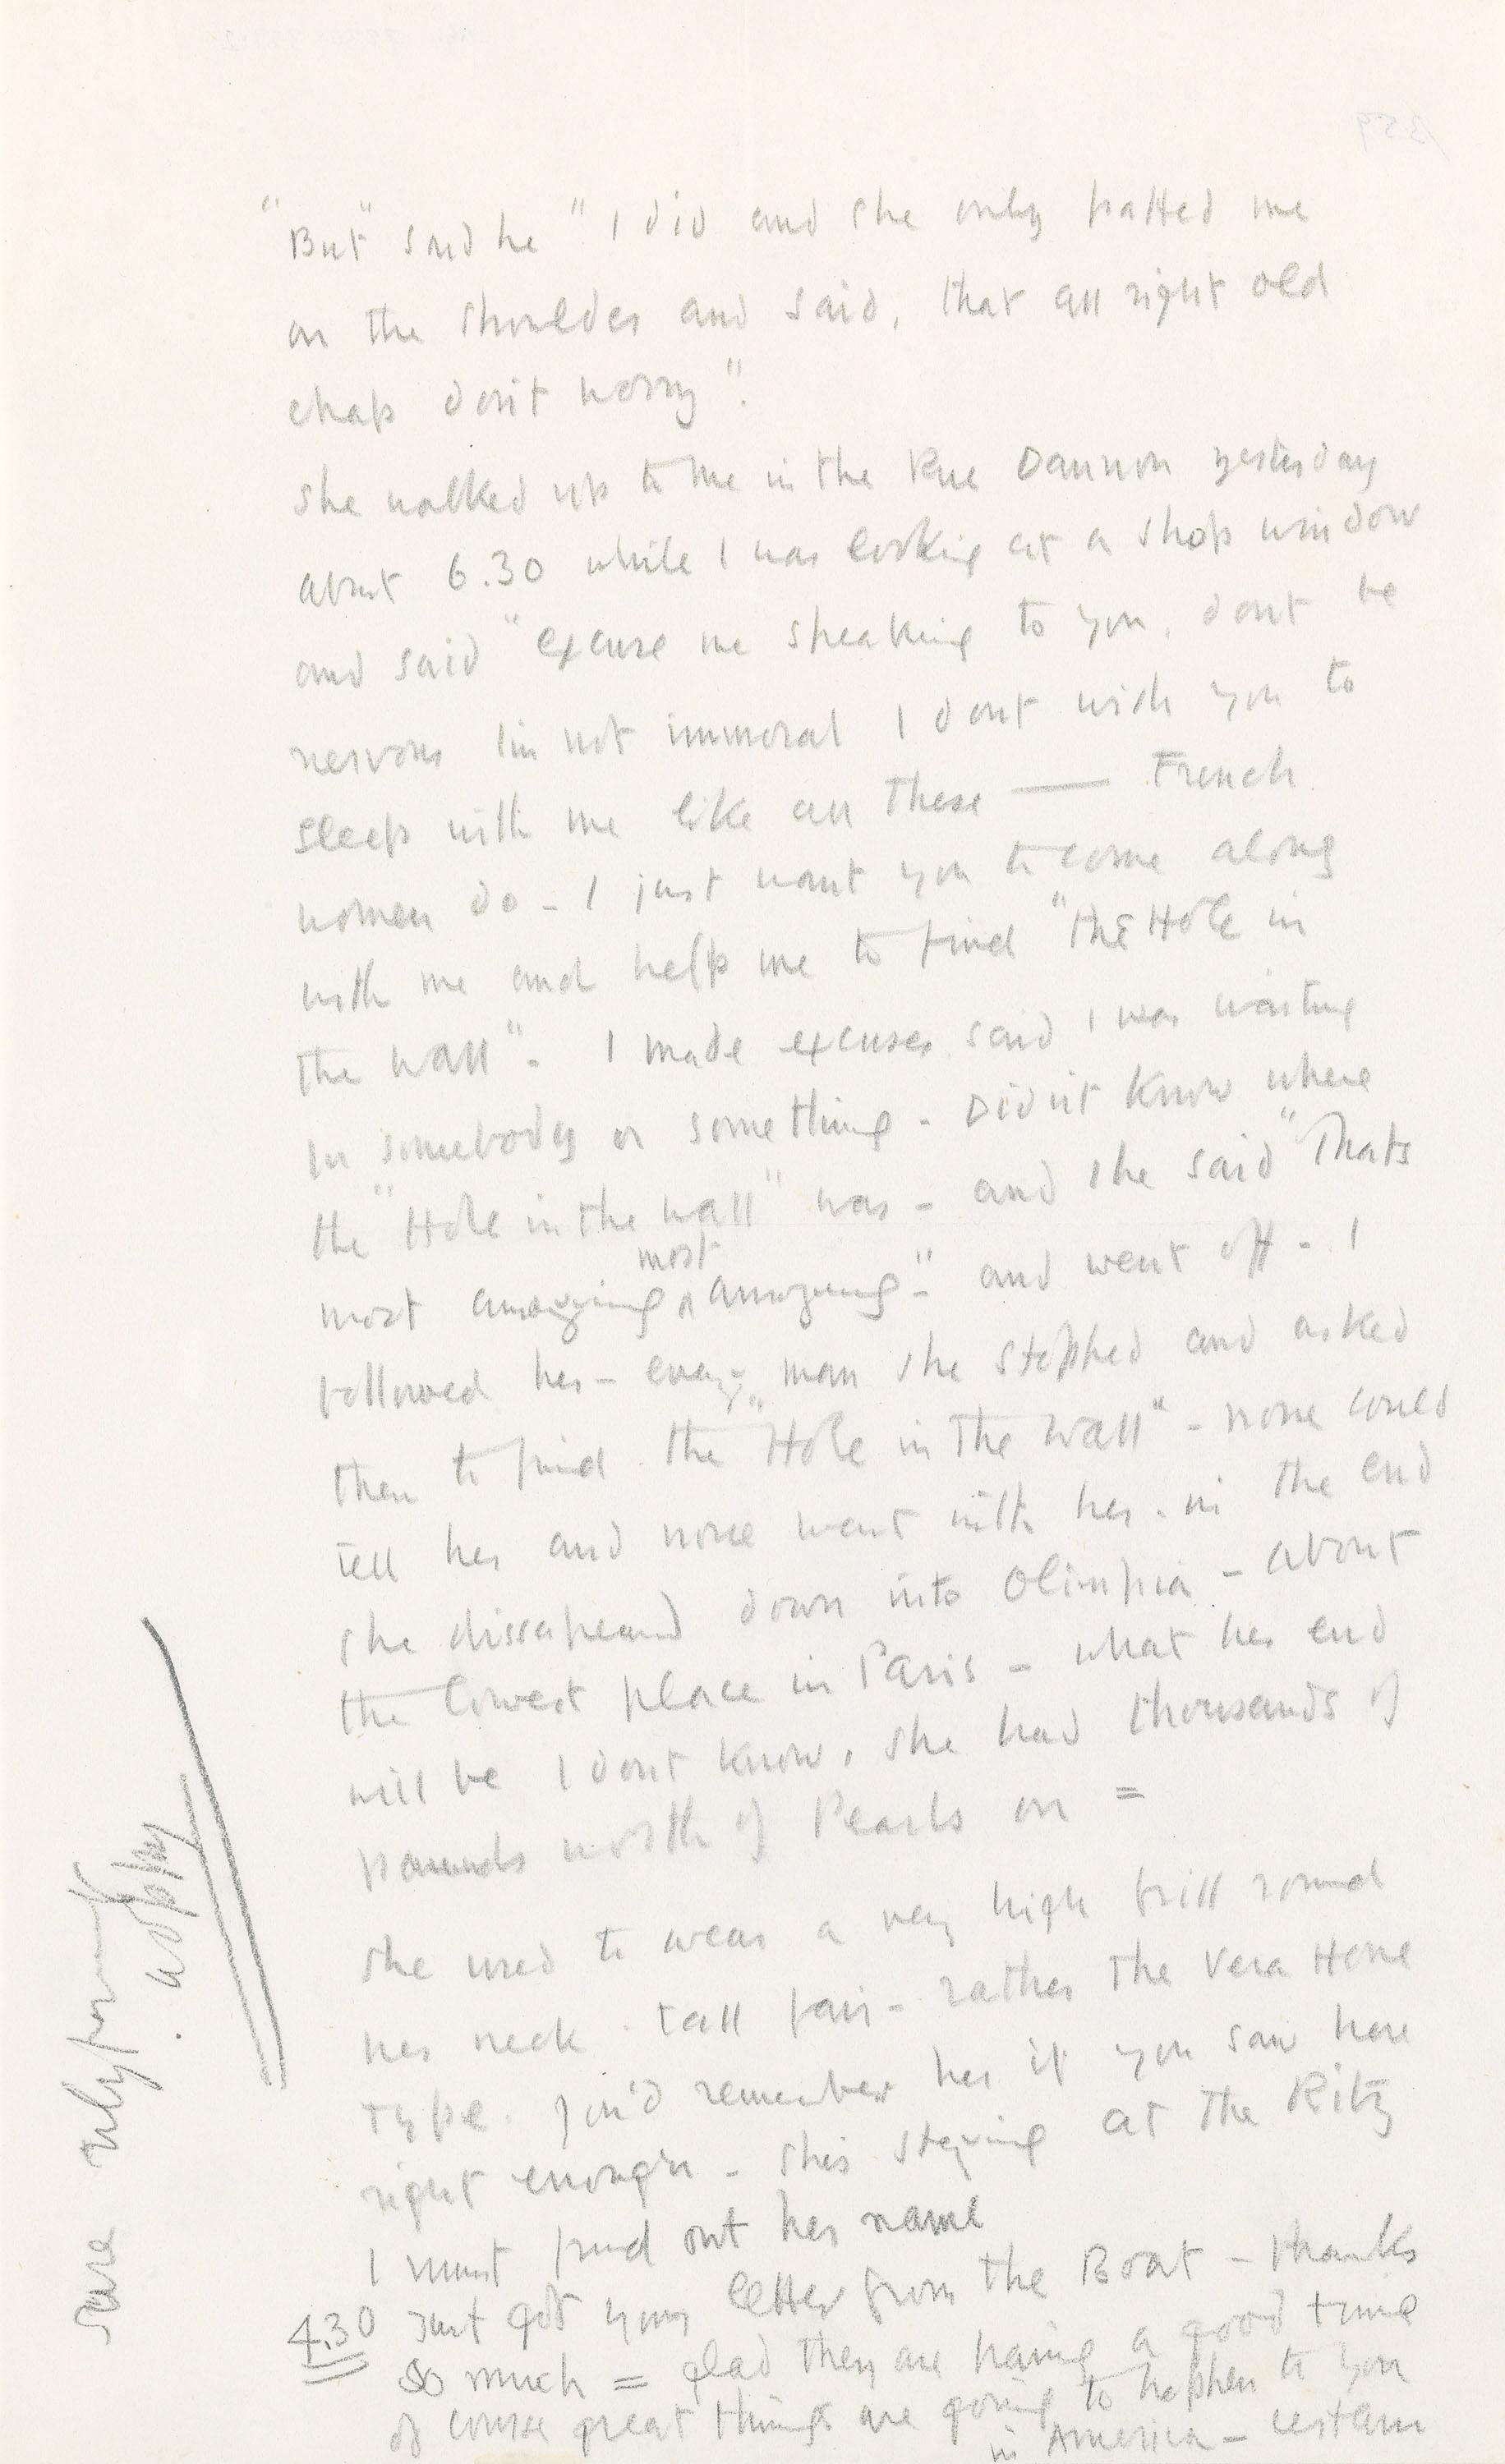 "But" said he "I did and she only patted me
on the shoulder and said, that all right old
chap don't worry".
She walked up to me in the Rue Daunou yesterday
about 6.30 while I was looking at a shop window
and said "excuse me speaking to you, dont be
nervous I'm not immoral I dont wish you to
sleep with me like all these —— French
women do - I just want you to come along
with me and help me to find "the Hole in
the Wall". I made excuses said I was waiting
for somebody or something - Didn't know where
the "Hole in the Wall" was - and she said "Thats
most annoying most annoying" - and went off - I
followed her - every man she stopped and asked
then to find the "Hole in the Wall" - none could
tell her and none went with her. in the end
she dissapeared down into Olimpia - about
the lowest place in Paris - what her end
will be I dont know, she had thousands of
pounds worth of Pearls on =
She used to wear a very high frill round
her neck. tall fair - rather the Vera Hone
type. You'd remember her if you saw here
right enough - she's staying at the Ritz
I must find out her name
4.30 Just got your letter from the Boat - thanks
so much = glad they are having a good time
of course great things are going to happen to you
in America - certain
sure
. MDPRY